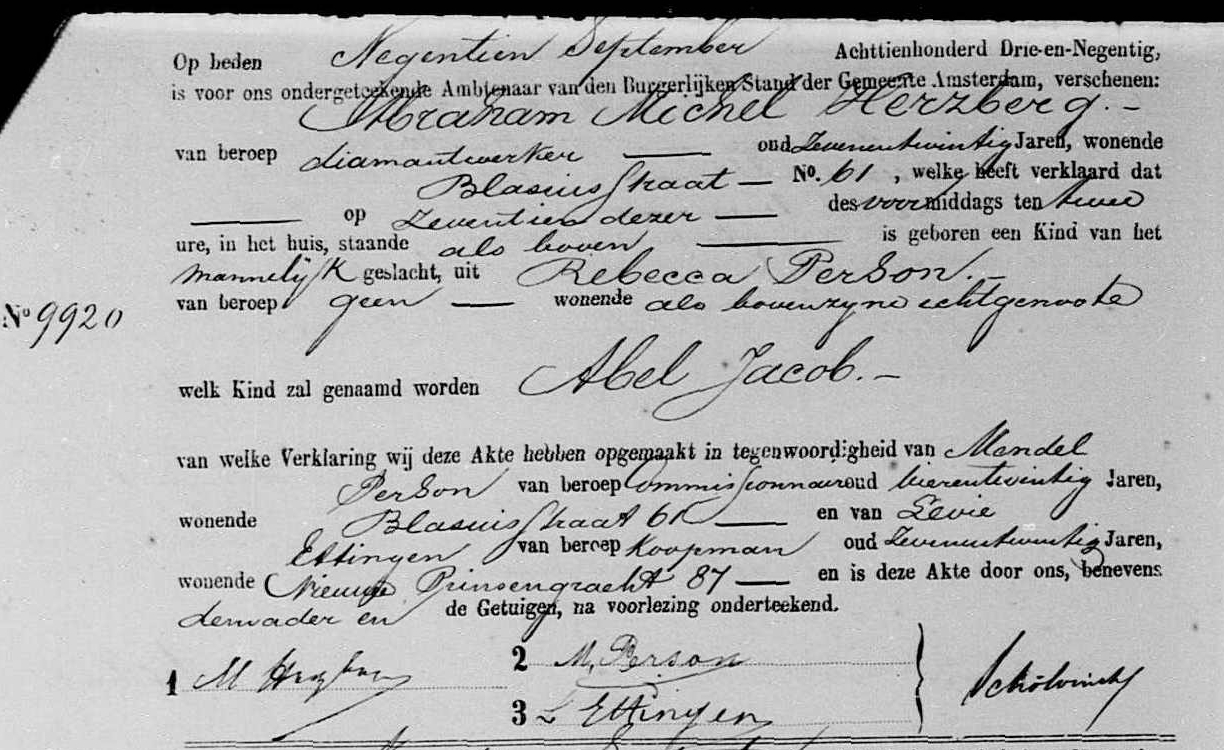 Op heden Negentien September Achttienhonderd Drie-en-Negentig,
is voor ons ondergeteekende Ambtenaar van den Burgerlijken Stand der Gemeente Amsterdam, verschenen:
Abraham Michel Herzberg. —
van beroep diamantwerker — oud Zevenentwintig Jaren, wonende
Blasiusstraat — No. 61 , welke heeft verklaard dat
— op Zeventien dezer — des voormiddags ten twee
ure, in het huis, staande als boven — is geboren een Kind van het
mannelijk geslacht, uit Rebecca Person. —
van beroep geen — wonende als boven zyne echtgenoote
No 9920
welk Kind zal genaamd worden Abel Jacob. —
van welke Verklaring wij deze Akte hebben opgemaakt in tegenwoordigheid van Mendel
Person van beroep Commissionnair oud vierentwintig Jaren,
wonende Blasiusstraat 61 — en van Levie
Ettingen van beroep Koopman oud Zevenentwintig Jaren,
wonende Nieuwe Prinsengracht 87 — en is deze Akte door ons, benevens
den vader en de Getuigen, na voorlezing onderteekend.
1 M Herzberg 2 M. Person
3 L Ettingen